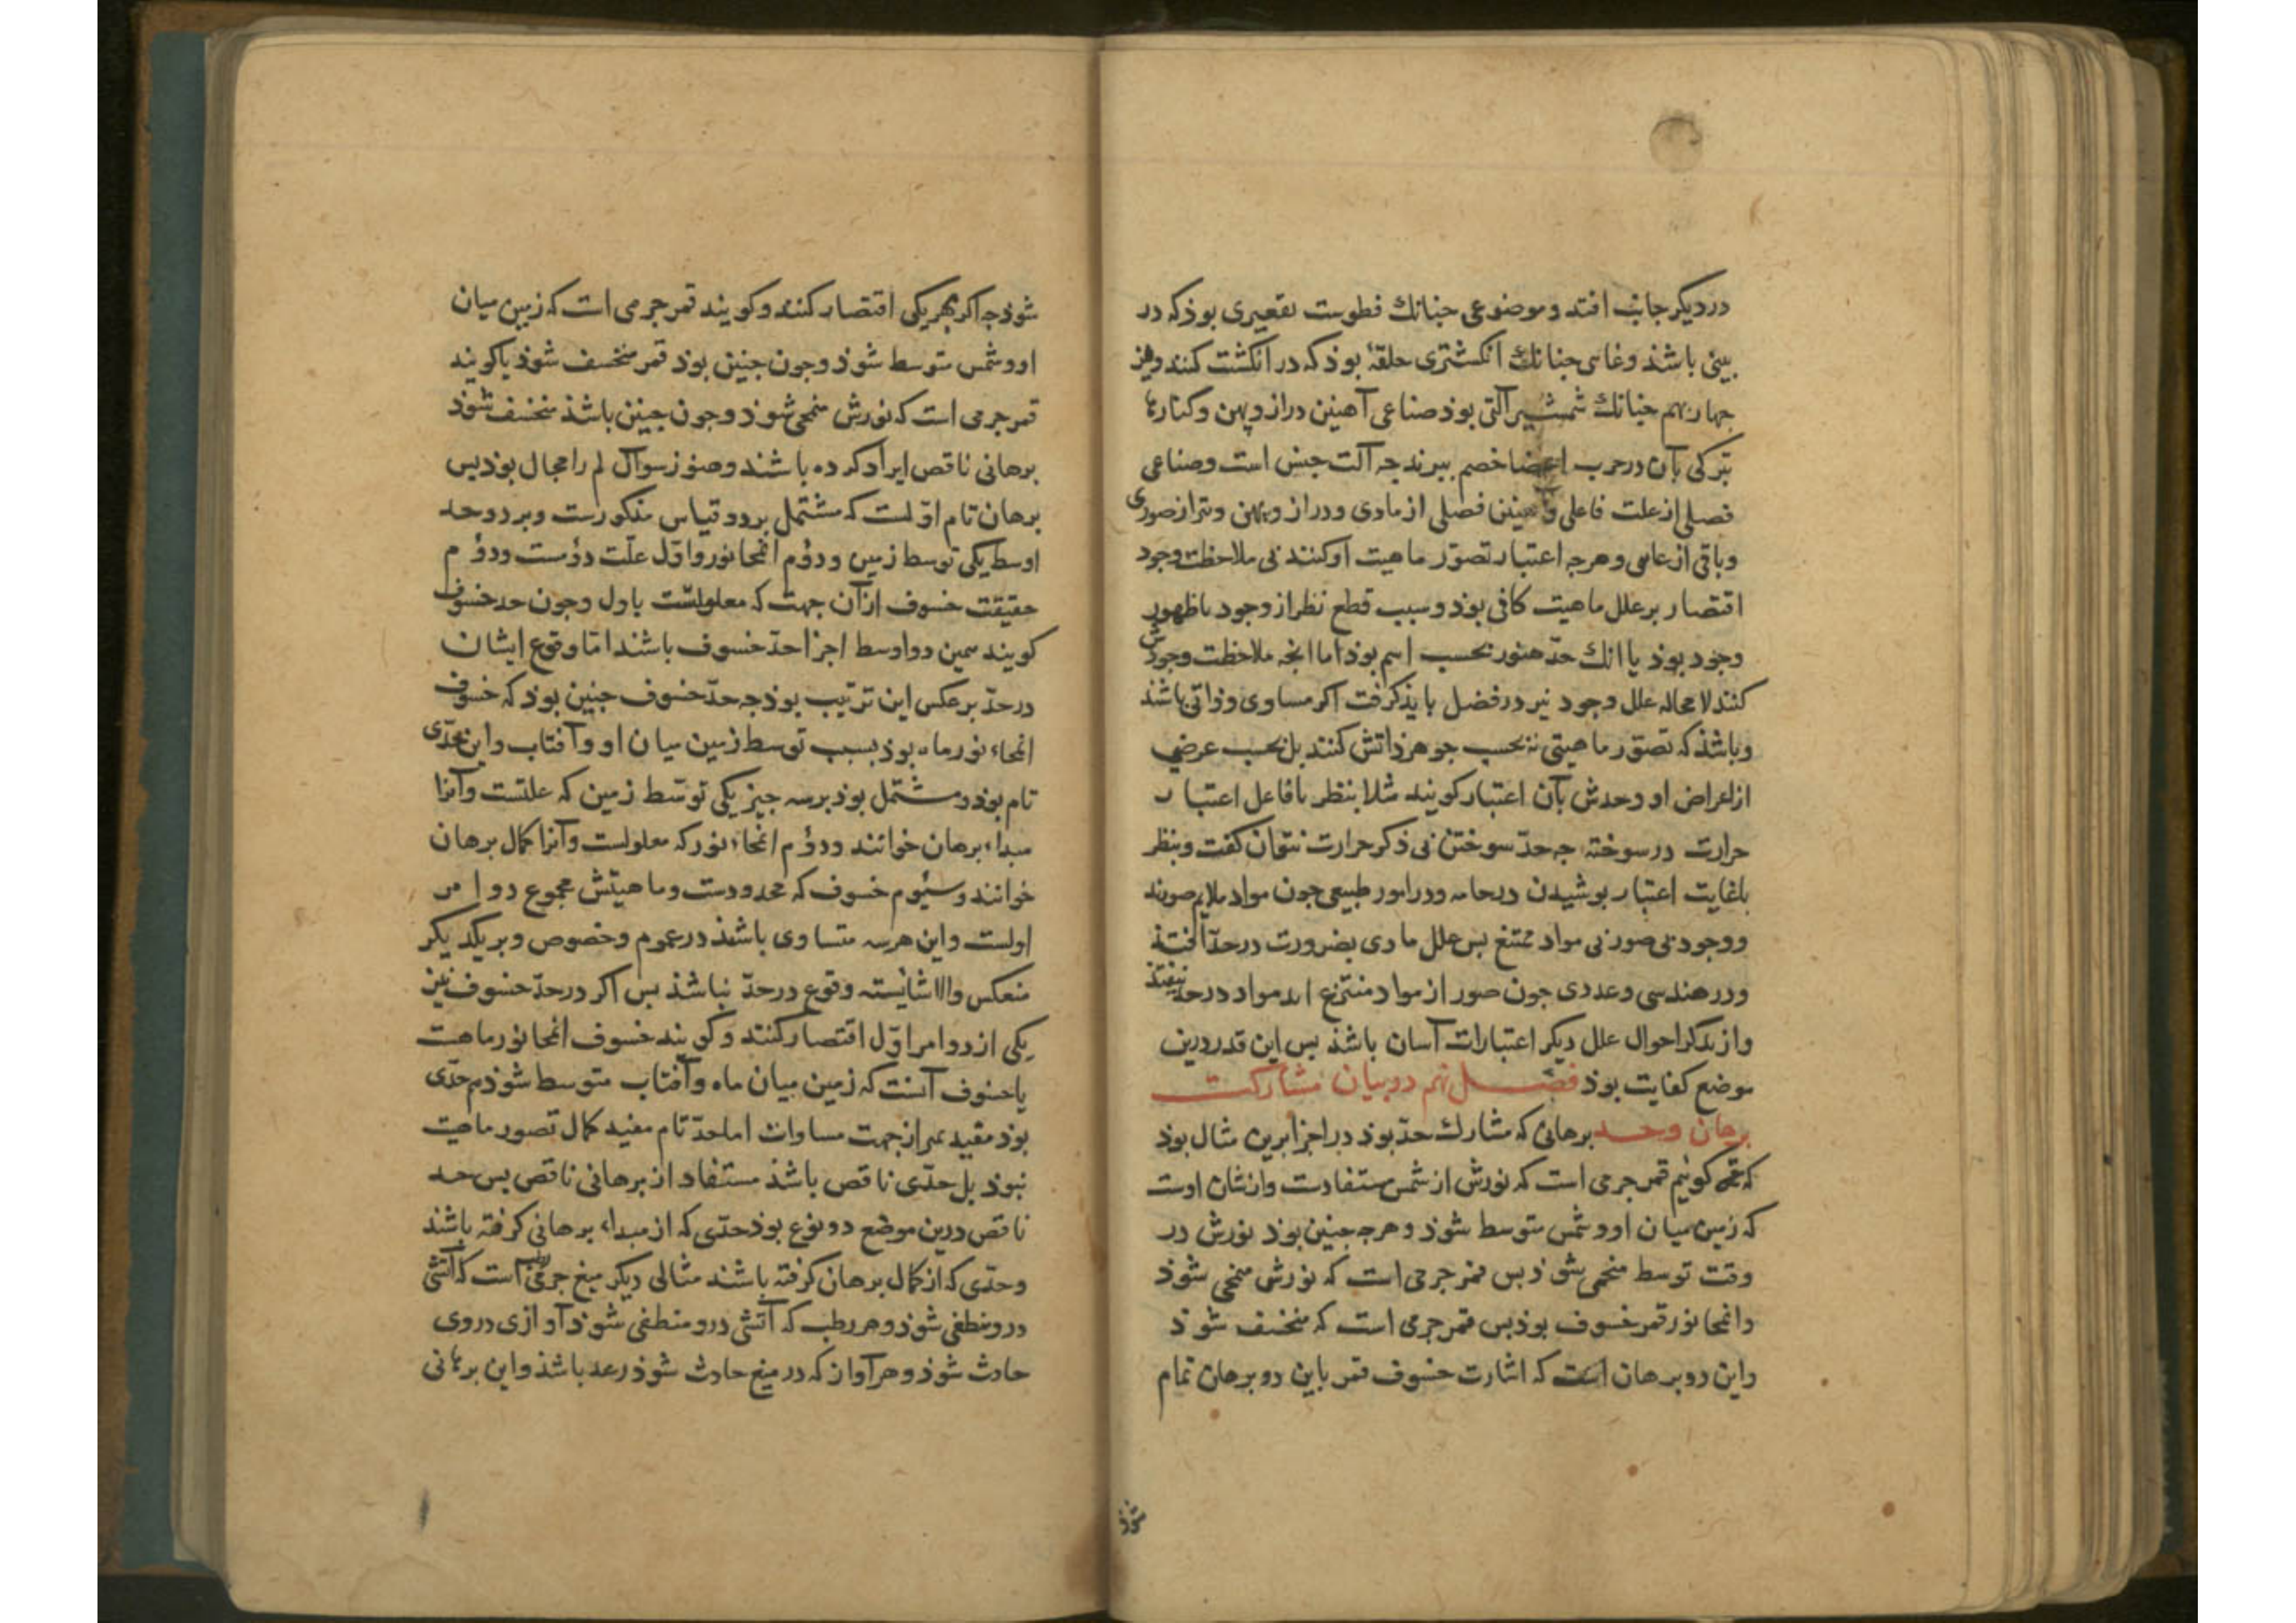 در دیکر جانب افتد و موضوعی جنانك فطوست تقعیری بوذ که در
بینی باشذ وغاسی جنانك انکشتری حلقۀ بوذ که در انکشت کنند و نیز
جهار بهم جنانك شمشیر آلتی بوذ صناعی آهنین دراز و پهن و کنارها
تیز کی بآن در حرب اعضا خصم ببرند جه آلت جنس است وصناعی
فصلی از علت فاعلی و آهنین فصلی از مادی و دراز و پهن و تیز از صوری
وباقی از غاسی وهرجه اعتبار تصوّر ماهیت او کنند بی ملاحظت وجود
اقتصار بر علل ماهیت کافی بوذ وسبب قطع نظر از وجود یا ظهور
وجود بوذ یا انك حدّ هنوز بحسب اسم بوذ اما انجه ملاحظت وجودش
کنند لا محاله علل وجود نیز در فصل بایذ کرفت اکر مساوی وذاتی باشذ
وباشذ که تصوّر ماهیتی نه بحسب جوهر ذاتش کنند بل بحسب عرضی
از اعراض او وحدش بآن اعتبار کویند مثلا بنظر با فاعل اعتبار
حرارت در سوخته جه حدّ سوختن بی ذکر حرارت نتوان کفت وبنظر
باغایت اعتبار بوشیدن در جامه ودر امور طبیعی جون مواد ملایم صورند
ووجود بی صور بی مواد ممتنع بس علل مادی بضرورت در حدّ افتذ
ودر هندسی وعددی جون صور از مواد منتزع اند مواد در حد نیفتذ
واز تذکر احوال علل دیکر اعتبارات آسان باشذ بس این قدر درین
موضع کفایت بوذ فصل نهم در بیان مشارکت
برهان وحد برهانی که مشارك حدّ بوذ در اجزا برین مثال بوذ
که کوئیم قمر جرمی است که نورش از شمس مستفادست وازشان اوست
که زمین میان او و شمس متوسط شوذ وهرجه جنین بوذ نورش در
وقت توسط منمحی شوذ بس قمر جرمی است که نورش منمحی شوذ
وانمحا نور قمر خسوف بوذ بس قمر جرمی است که منخسف شوذ
واین دو برهان است که اشارت خسوف قمر باین دو برهان تمام
شوذ
شوذ جه اکر بهر یکی اقتصار کنند و کویند قمر جرمی است که زمین میان
او و شمس متوسط شوذ وجون جنین بوذ قمر منخسف شوذ یا کویند
قمر جرمی است که نورش منمحی شوذ وجون جنین باشذ منخسف شوذ
برهانی ناقص ایراد کرده باشند وهنوز سوآل لم را مجال بوذ بس
برهان تام اوّلست که مشتمل بر دو قیاس مذکورست وبر دو حد
اوسط یکی توسط زمین و دوُم انمحا نور واوّل علّت دوُست ودوُم
حقیقت خسوف از آن جهت که معلولست باول وجون حد خسوف
کویند همین دو اوسط اجزا حدّ خسوف باشند امّا وقوع ایشان
در حدّ بر عکس این ترتیب بوذ جه حدّ خسوف جنین بوذ که خسوف
انمحاء نور ماه بوذ بسبب توسط زمین میان او وآفتاب واین حدّی
تام بوذ ومشتمل بوذ بر سه جیز یکی توسّط زمین که علتست وآنرا
مبداء برهان خوانند ودوُم انمحاء نور که معلولست وآنرا کمال برهان
خوانند وسیُوم خسوف که محدودست وماهیتش مجموع دو امر
اولست واین هر سه متساوی باشند در عموم وخصوص وبر یکدیکر
منعکس والا شایسته وقوع در حدّ نباشذ بس اکر در حدّ خسوف نیز
یکی از دو امر اوّل اقتصار کنند وکویند خسوف انمحا نور ماهست
یا خسوف آنست که زمین میان ماه وآفتاب متوسط شوذ هم حدّی
بوذ مفید تمیز از جهت مساوات اما حدّ تام مفید کمال تصور ماهیت
نبوذ بل حدّی ناقص باشذ مستفاد از برهانی ناقص بس حد
ناقص درین موضع دو نوع بوذ حدّی که از مبداء برهانی کرفته باشند
وحدّی که از کمال برهان کرفته باشند مثالی دیکر میغ جرمی رطب است که آتشی
درو منطفی شوذ وهر رطب که آتشی درو منطفی شوذ آوازی در وی
حادث شوذ وهر آواز که در میغ حادث شوذ رعد باشذ واین برهانی